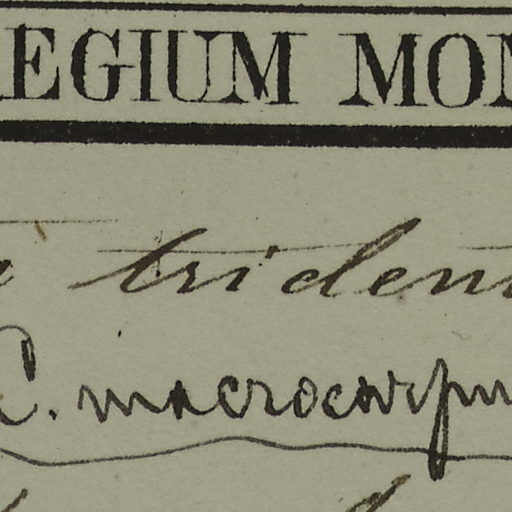 EGIUM MON
triden
C. macrocarpu